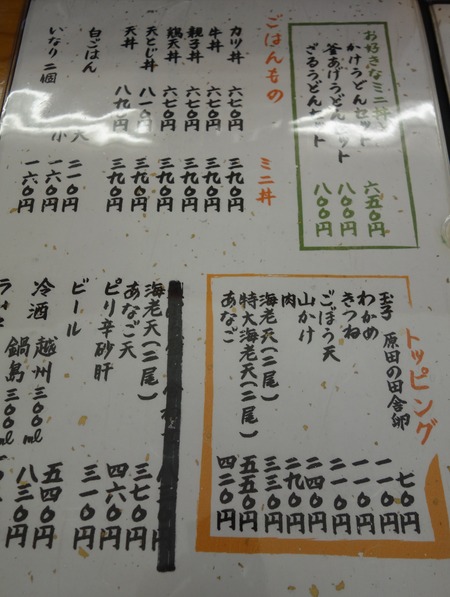 お好きなミニ丼
かけうどんセット 六五〇円
釜あげうどんセット 八〇〇円
ざるうどんセット 八〇〇円
ごはんもの ミニ丼
カツ丼 六七〇円 三九〇円
牛丼 六七〇円 三九〇円
親子丼 六七〇円 三九〇円
鶏天丼 六七〇円 三九〇円
天とじ丼 八一〇円 三九〇円
天丼 八九〇円 三九〇円
白ごはん 大 二一〇円
小 一六〇円
いなり二個 一六〇円
トッピング
玉子 原田の田舎卵 七〇円
わかめ 一一〇円
きつね 一一〇円
ごぼう天 二一〇円
山かけ 二四〇円
肉 二九〇円
海老天(二尾) 三三〇円
特大海老天(二尾) 五五〇円
あなご 四二〇円
海老天(二尾) 三七〇円
あなご天 四六〇円
ピリ辛砂肝 三一〇円
ビール
冷酒 越州300ml 五四〇円
鍋島300ml 八三〇円